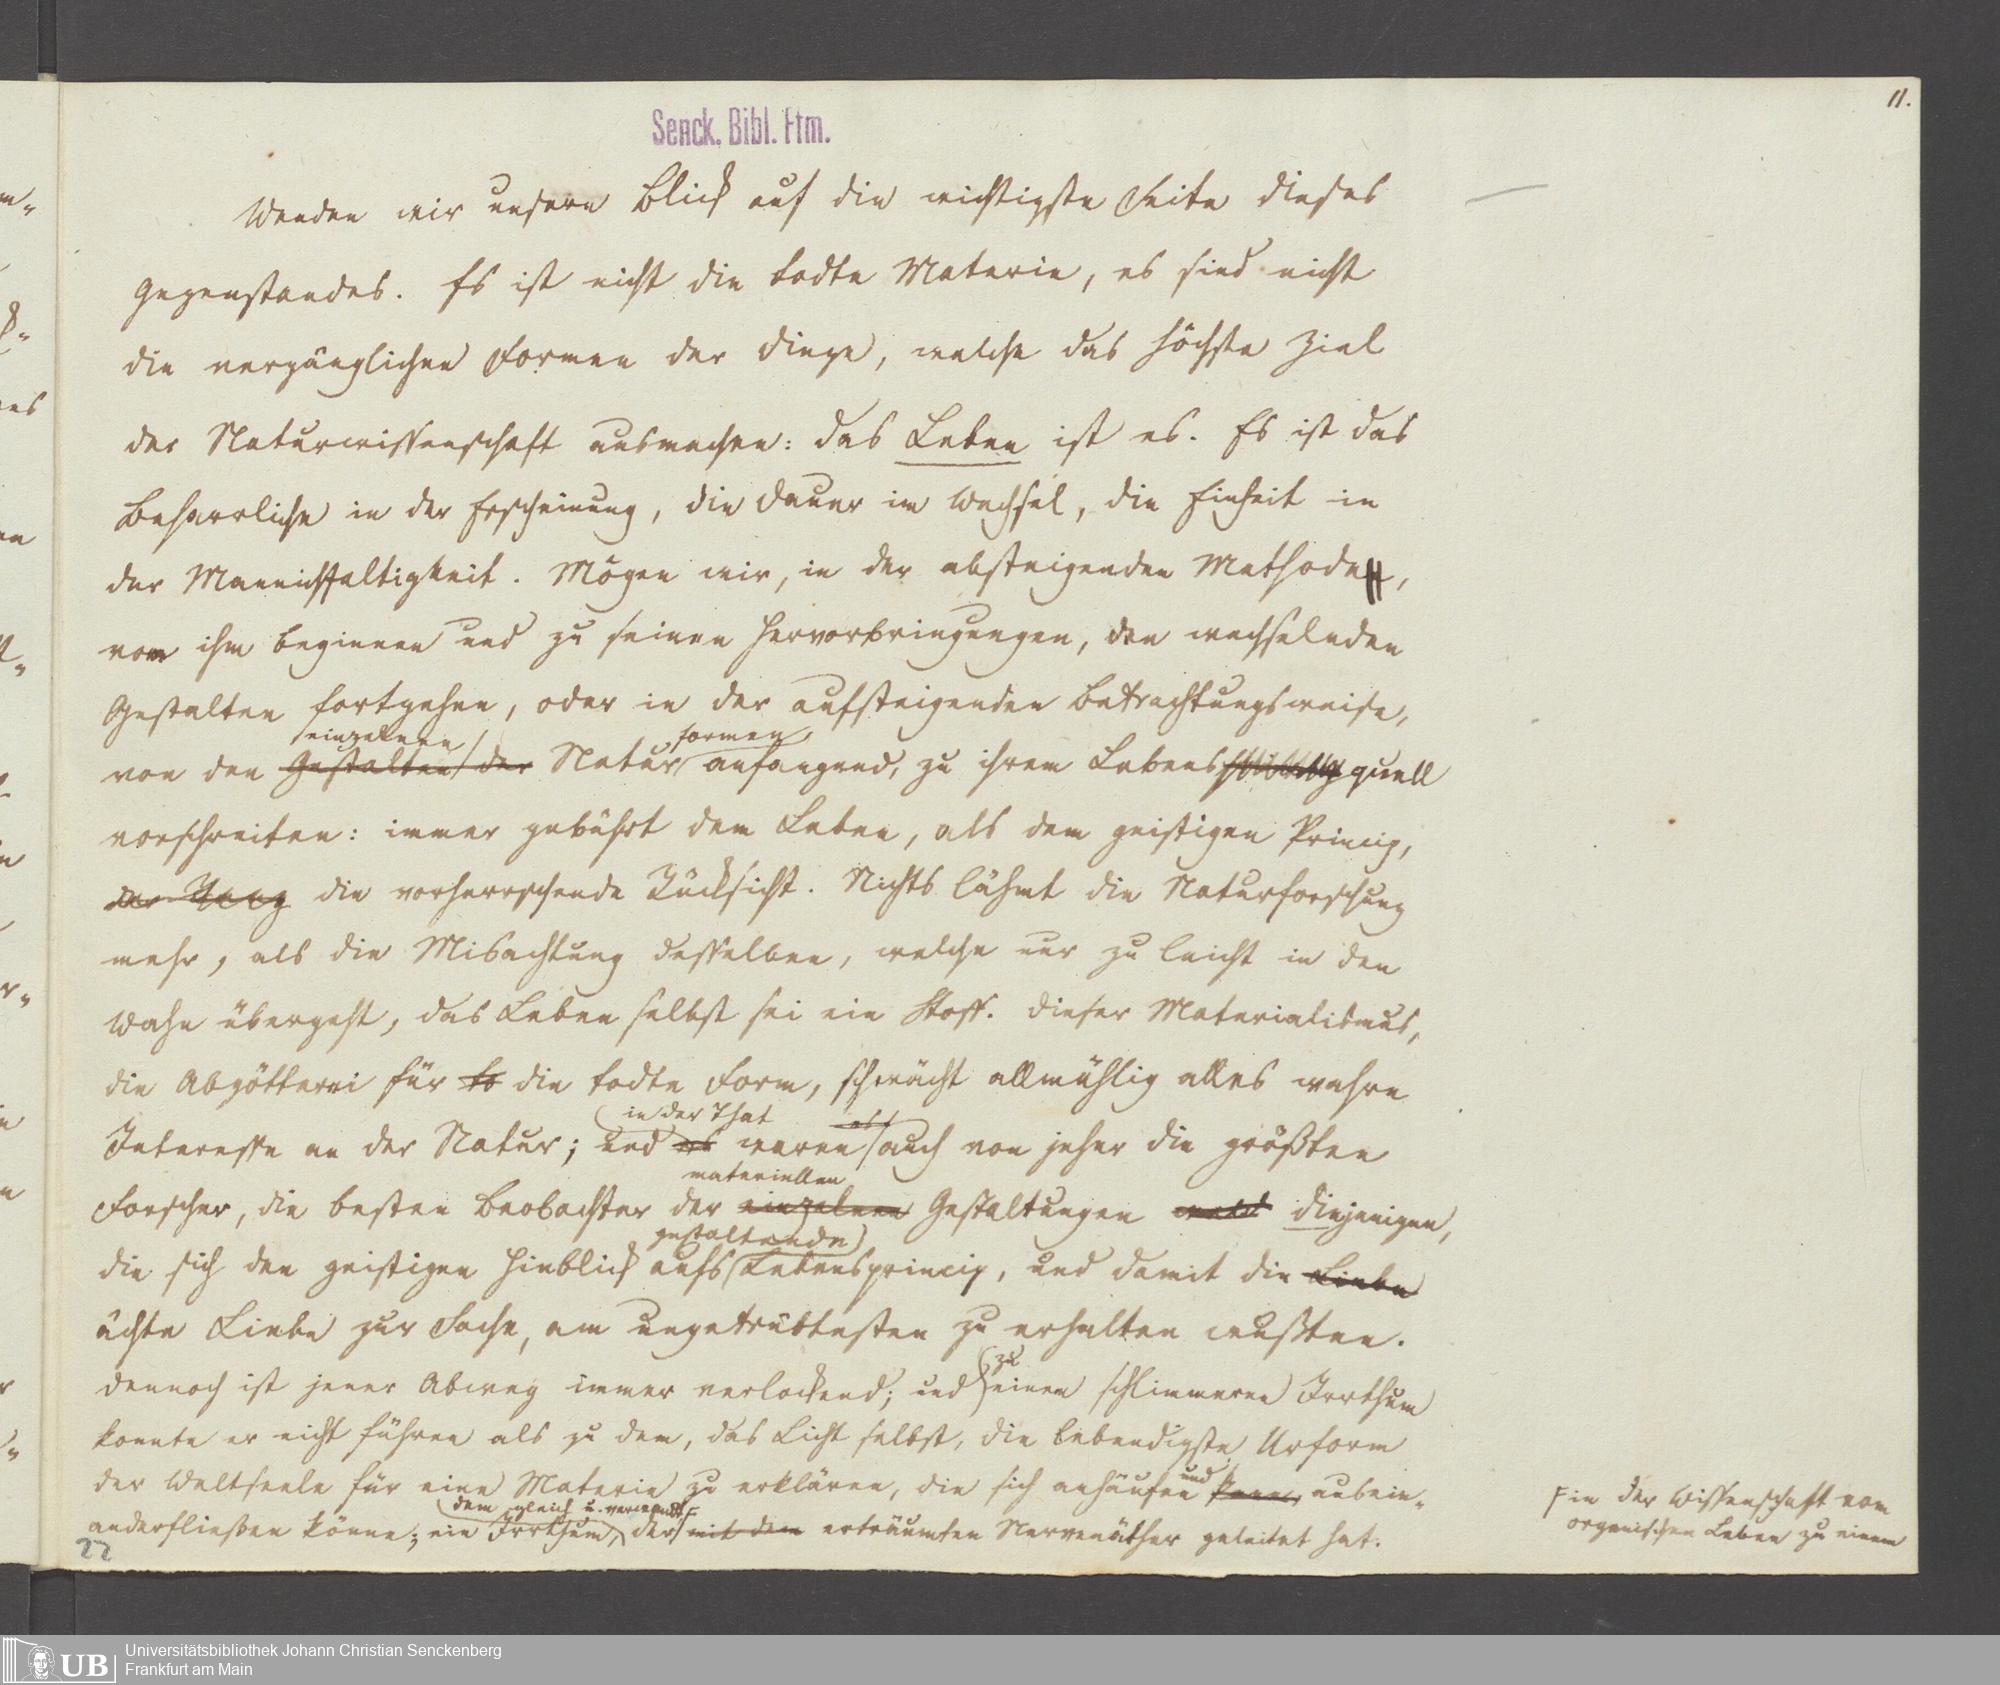 11.
Senck. Bibl. Ffm.
Wenden wir unsern Blick auf die wichtigste Seite dieses
Gegenstandes. Es ist nicht die todte Materie, es sind nicht
die vergänglichen Formen der Dinge, welche das höchste Ziel
der Naturwissenschaft ausmachen: das Leben ist es. Es ist das
Beharrliche in der Erscheinung, die Dauer im Wechsel, die Einheit in
der Mannichfaltigkeit. Mögen wir, in der absteigenden Methode,
von ihm beginnen und zu seinen Hervorbringungen, den wechselnden
Gestalten fortgehen, oder in der aufsteigenden Betrachtungsweise,
einzelnen formen
von den Gestalten der Natur anfangend, zu ihrem Lebensquell
vorschreiten: immer gebührt dem Leben, als dem geistigen Princip,
die vorherrschende Rücksicht. Nichts lähmt die Naturforschung
mehr, als die Misachtung desselben, welche nur zu leicht in den
Wahn übergeht, das Leben selbst sei ein Stoff. Dieser Materialismus,
die Abgötterei für to die todte Form, schwächt allmählig alles wahre
in der That
Interesse an der Natur; und es waren auch von jeher die größten
materiellen
Forscher, die besten Beobachter der einzelnen Gestaltungen diejenigen,
gestaltende
die sich den geistigen Hinblick aufs Lebensprincip, und damit die Liebe
ächte Liebe zur Sache, am ungetrübtesten zu erhalten wußten.
zu
Dennoch ist jener Abweg immer verlockend; und einen schlimmeren Irrthum
konnte er nicht führen als zu dem, das Licht selbst, die lebendigste Urform
der Weltseele für eine Materie zu erklären, die sich anhäufen kann, ausein-
und
dem gleich u. verwandt
anderfließen könne; ein Irrthum, der mit dem erträumten Nervenäther geleitet hat.
F in der Wissenschaft vom
organischen Leben zu einem
22
UB
Universitätsbibliothek Johann Christian Senckenberg
Frankfurt am Main